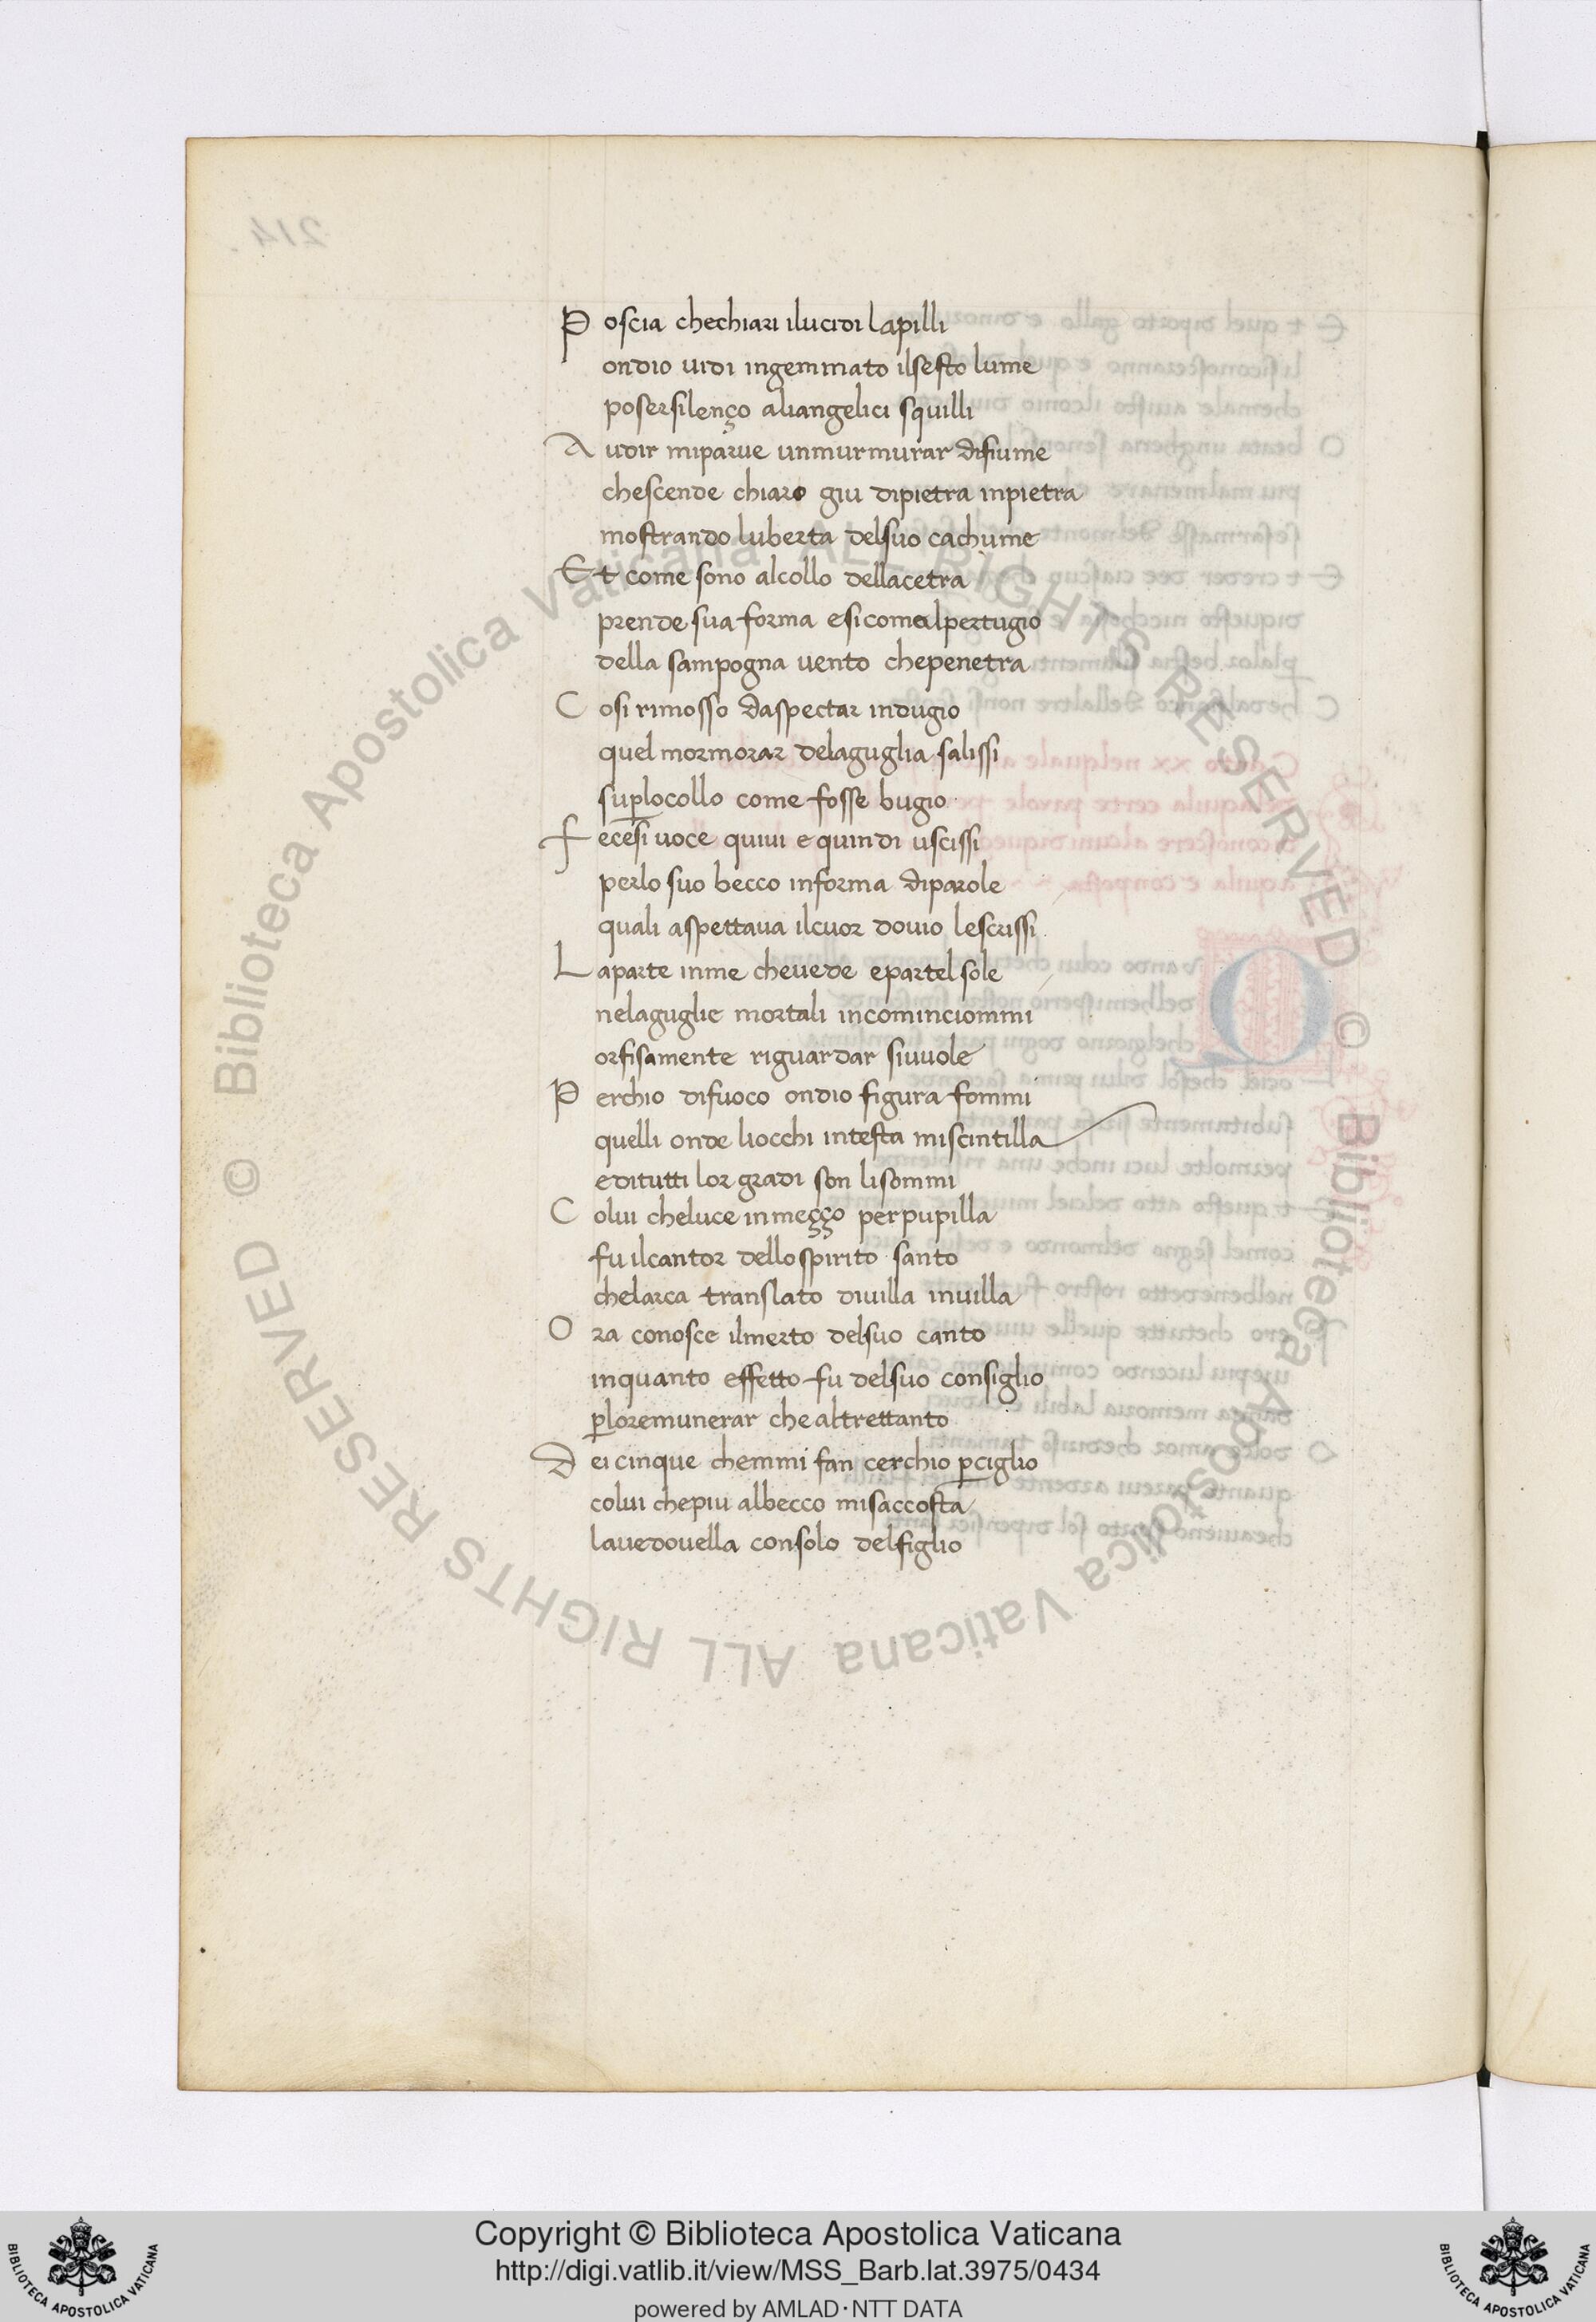 P oscia chechiari ilucidi lapilli
ondio uidi ingemmato ilsesto lume
posersilenço aliangelici squilli
A udir miparue unmurmurar difiume
chescende chiaro giu dipietra inpietra
mostrando luberta delsuo cachume
E t come sono alcollo dellacetra
prende sua forma esicomealpertugio
della sampogna uento chepenetra
C osi rimosso daspectar indugio
quel mormorar delaguglia salissi
suplocollo come fosse bugio
F ecesi uoce quiui e quindi uscissi
perlo suo becco informa diparole
quali aspettaua ilcuor douio lescrissi
L aparte inme cheuede epartel sole
nelaguglie mortali incominciommi
orfisamente riguardar siuuole
P erchio difuoco ondio figura fommi
quelli onde liocchi intesta miscintilla
editutti lor gradi son lisommi
C olui cheluce inmeçço perpupilla
fu ilcantor dello spirito santo
chelarca translato diuilla inuilla
O ra conosce ilmerto delsuo canto
inquanto effetto fu delsuo consiglio
ploremunerar che altrettanto
D ei cinque chemmi fan cerchio pciglio
colui chepiu albecco misaccosta
lauedouella consolo delfiglio
214
© Biblioteca Apostolica Vaticana ALL RIGHTS RESERVED © Biblioteca Apostolica Vaticana ALL RIGHTS RESERVED
BIBLIOTECA APOSTOLICA VATICANA
Copyright © Biblioteca Apostolica Vaticana
http://digi.vatlib.it/view/MSS_Barb.lat.3975/0434
powered by AMLAD·NTT DATA
BIBLIOTECA APOSTOLICA VATICANA